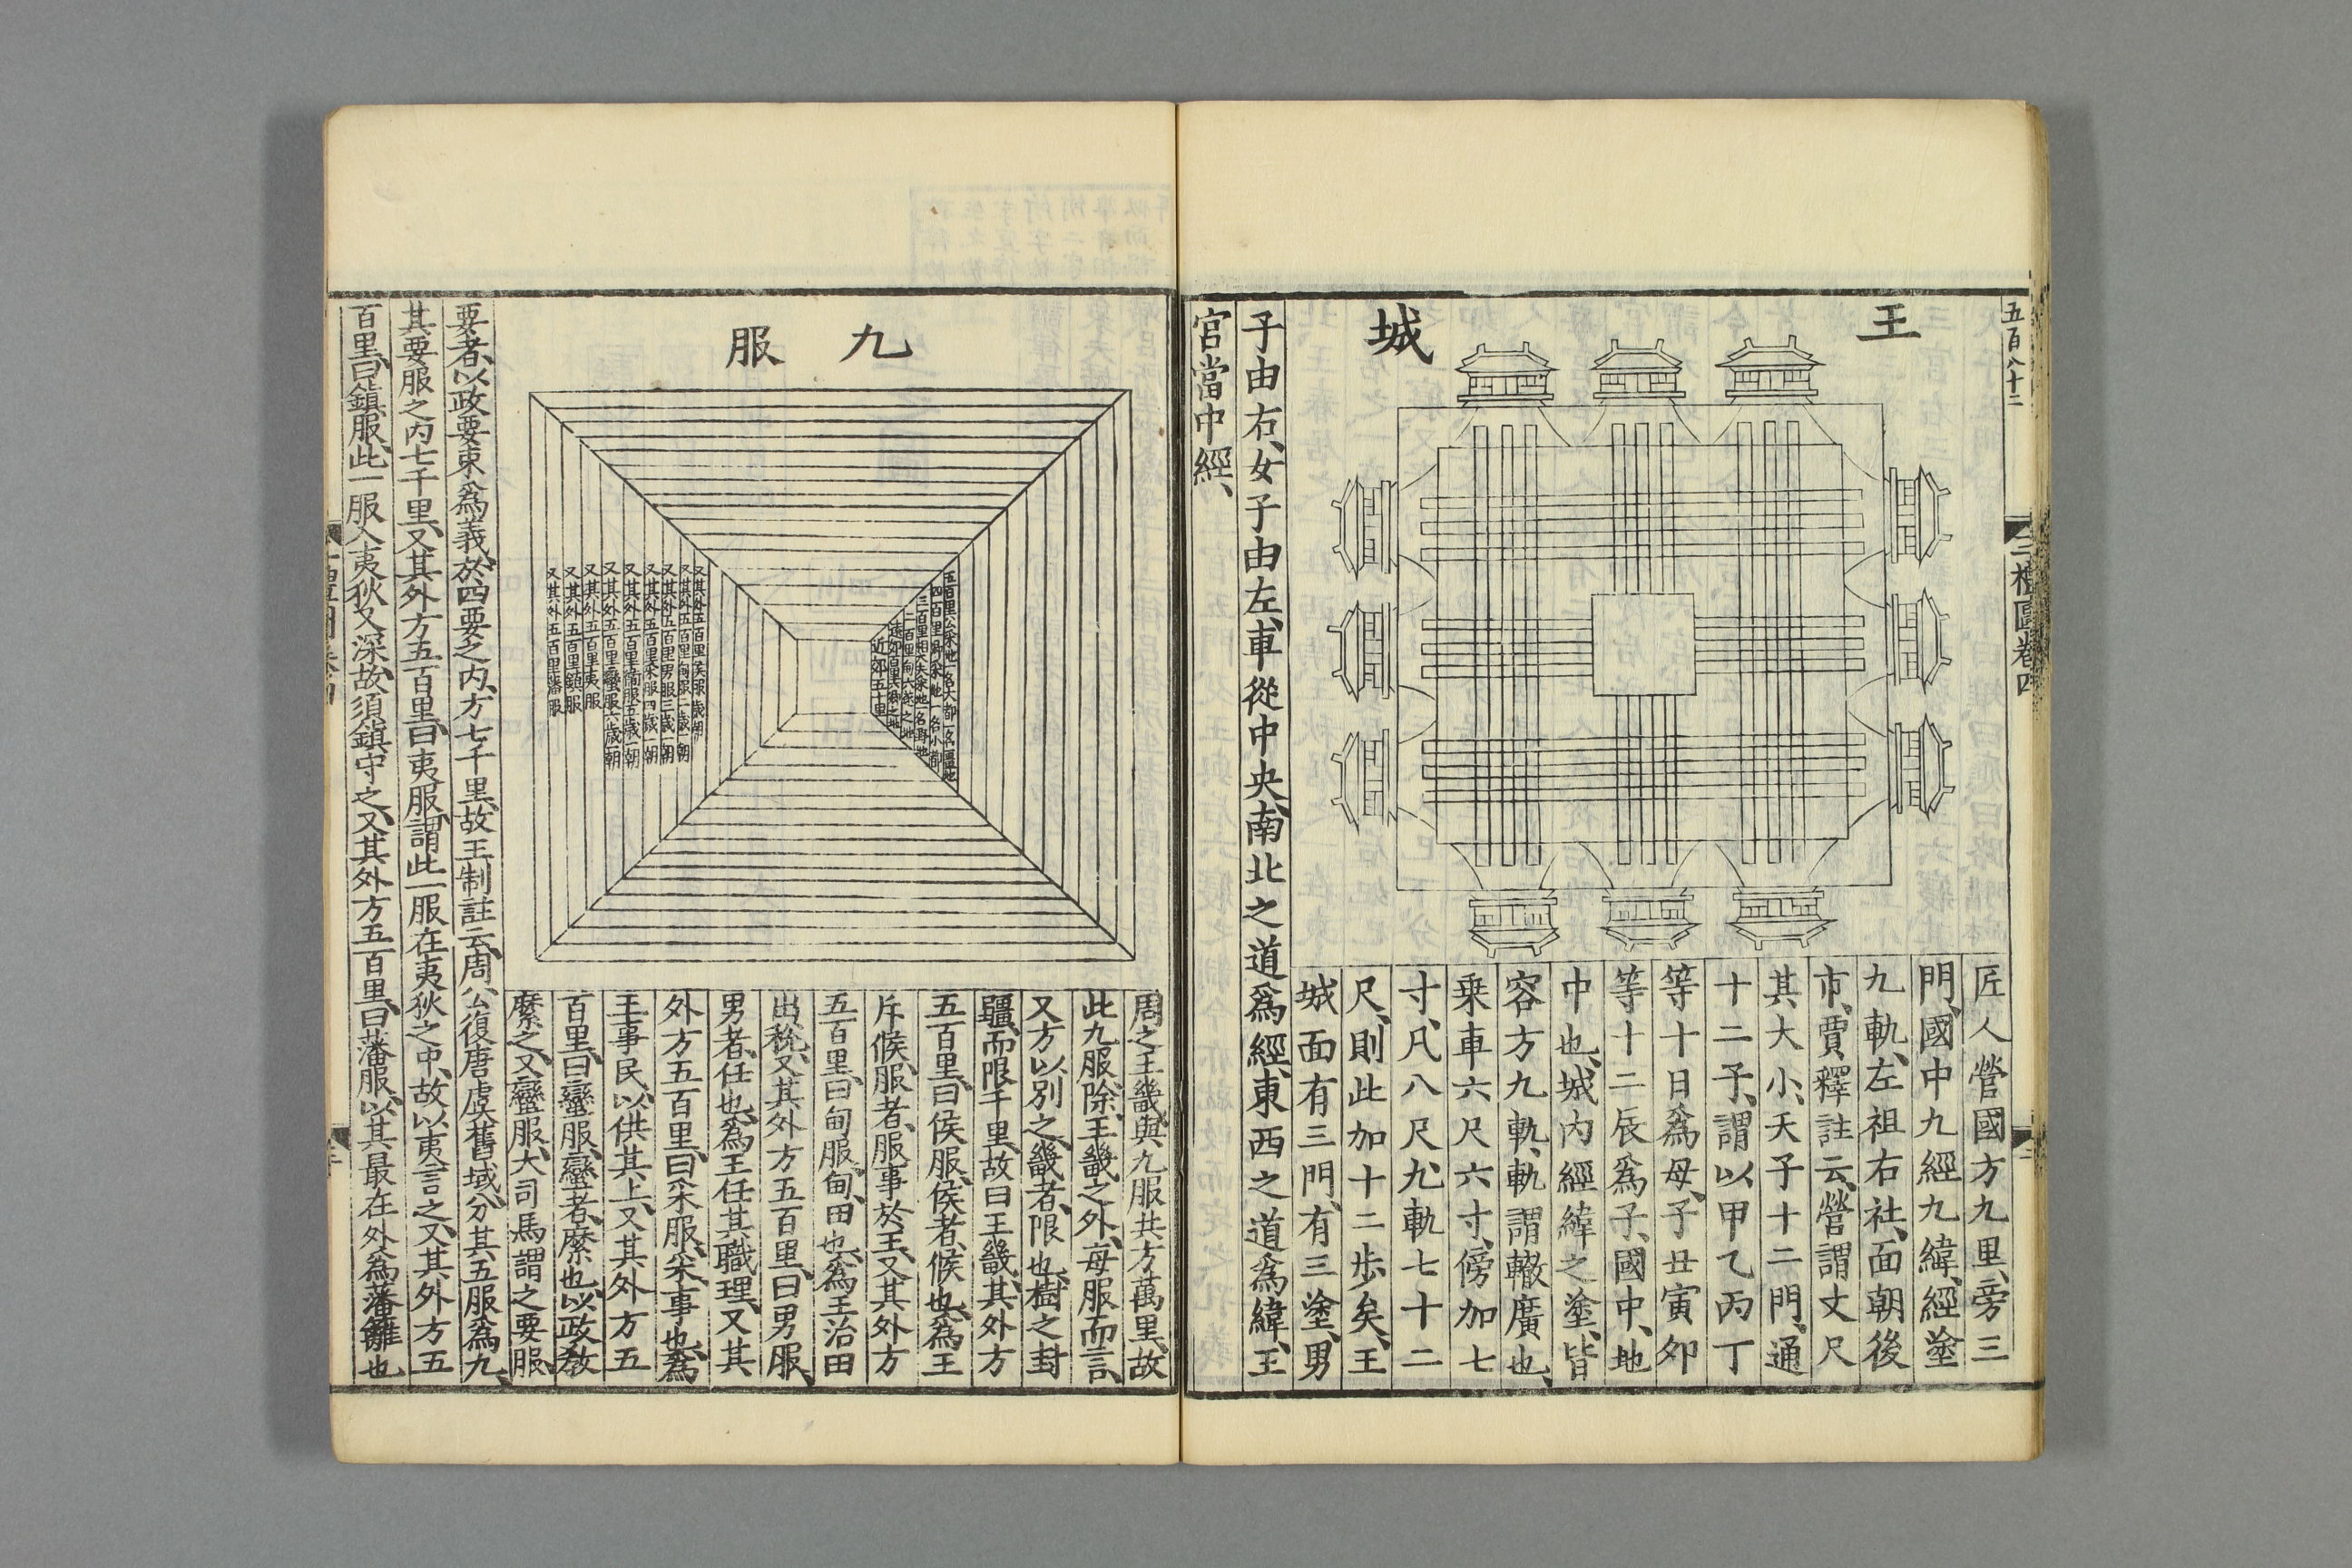 五百八十二
三禮圖卷四
王城
匠人營國方九里、旁三
門、國中九經九緯、經塗
九軌、左祖右社、面朝後
市、賈釋註云、營謂丈尺
其大小、天子十二門、通
十二子、謂以甲乙丙丁
等十日爲母、子丑寅卯
等十二辰爲子、國中、地
中也、城內經緯之塗、皆
容方九軌、軌謂轍廣也、
乗車六尺六寸、傍加七
寸、凡八尺九、軌七十二
尺、則此加十二歩矣、王
城面有三門、有三塗、男
子由右、女子由左、車從中央、南北之道爲經、東西之道爲緯、王
宮當中經、
九服
五百里公采地一名大都一名畺地
四百里卿采地一名小都
近郊五十里
又其外五百里侯服一歲一朝
又其外五百里甸服二歲一朝
又其外五百里男服三歲一朝
又其外五百里采服四歲一朝
又其外五百里衛服五歲一朝
又其外五百里蠻服六歲一朝
又其外五百里夷服
又其外五百里鎮服
又其外五百里藩服
周之王畿與九服共方萬里、故
此九服除王畿之外、每服而言、
又方以別之、畿者、限也、樹之封
疆、而限千里、故曰王畿、其外方
五百里、曰侯服、侯者、候也、爲王
斥候、服者、服事於王、又其外方
五百里、曰甸服、甸、田也、爲王治田
出稅、又其外方五百里、曰男服、
男者、任也、爲王任其職理、又其
外方五百里、曰采服、采、事也、爲
王事民、以供其上、又其外方五
百里、曰蠻服、蠻者、縻也、以政教
縻之、又蠻服、大司馬謂之要服、
要者、以政要束爲義、於四要之內、方七千里、故王制註云、周公復唐虞舊域、分其五服爲九、
其要服之內七千里、又其外方五百里、曰夷服、謂此一服在夷狄之中、故以夷言之、又其外方五
百里、曰鎮服、此一服入夷狄又深、故須鎮守之、又其外方五百里、曰藩服、以其最在外爲藩籬也